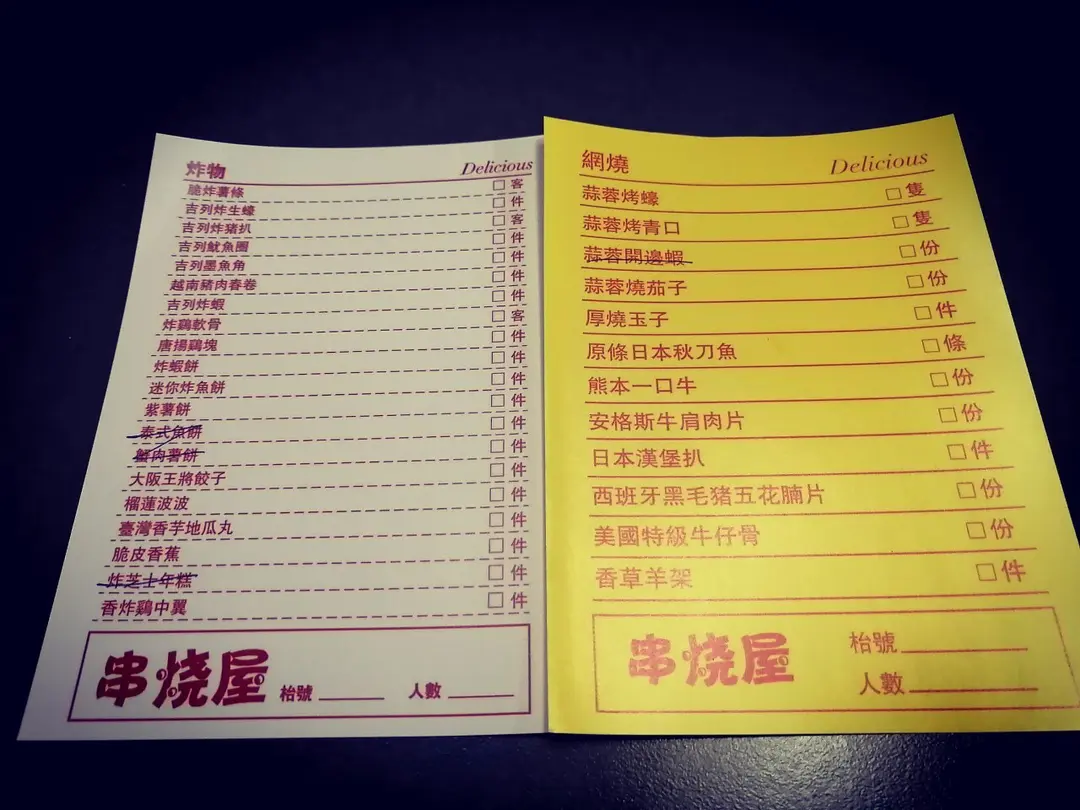 炸物 Delicious
脆炸薯條 □ 客
吉列炸生蠔 □ 件
吉列炸猪扒 □ 客
吉列魷魚圈 □ 件
吉列墨魚角 □ 件
越南猪肉春卷 □ 件
吉列炸蝦 □ 件
炸鷄軟骨 □ 客
唐揚鷄塊 □ 件
炸蝦餅 □ 件
迷你炸魚餅 □ 件
紫薯餅 □ 件
泰式魚餅 □ 件
蟹肉薯餅 □ 件
大阪王將餃子 □ 件
榴蓮波波 □ 件
臺灣香芋地瓜丸 □ 件
脆皮香蕉 □ 件
炸芝士年糕 □ 件
香炸鷄中翼 □ 件
串烧屋 枱號 人數
網燒 Delicious
蒜蓉烤蠔 □ 隻
蒜蓉烤青口 □ 隻
蒜蓉開邊蝦 □ 份
蒜蓉燒茄子 □ 份
厚燒玉子 □ 件
原條日本秋刀魚 □ 條
熊本一口牛 □ 份
安格斯牛肩肉片 □ 份
日本漢堡扒 □ 件
西班牙黑毛猪五花腩片 □ 份
美國特級牛仔骨 □ 份
香草羊架 □ 件
串烧屋
枱號
人數